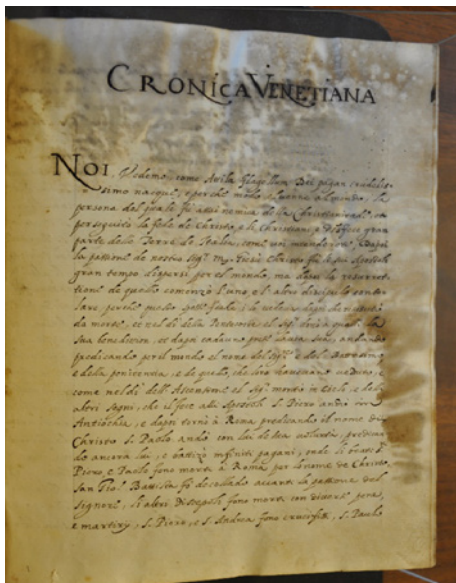 CRONICA VENETIANA
NOI, Vedemo, come Attila flagellum Dei pagan crudelis
simo nacque, e per che modo al mondo, la
persona del quale fù assai nemica della Christianitade, et
perseguitò la fede de Christo, e li Christiani, e disfece gran
parte della Terra de Italia, come voi intenderete. Dapoi
la passione de nostro Sig.r Christo li suoi Apostoli
gran tempo dispersi per el mondo, ma dapoi la resurret
tione de quello comenzò l'uno, e l'altro discipulo
perche
da morte, et nel dì della el Sig.r a quelli la
sua benedition, et dapoi cadauno andando
predicando per il mondo el nome del Sig.r e del Battesimo
e della penitentia, e de quello, che loro havevano
come nel dì dell' Ascensione el Sig.r montò in Cielo, e delli
altri segni, che il fece alli Apostoli. S. Piero andò in
Antiochia, e dapoi tornò à Roma predicando il nome de
Christo. S. Paolo andò con lui de sua volontà, predican
do ancora lui, e battizò infiniti pagani, onde li beati S.
Piero, e Paulo fono morti à Roma per il nome de Christo
San Battista fù decollado avanti la passione del
Signore, li altri Discepoli fono morti con diverse pene,
e martirij, S. Piero, e S. Andrea fono crucifissi, S. Paulo